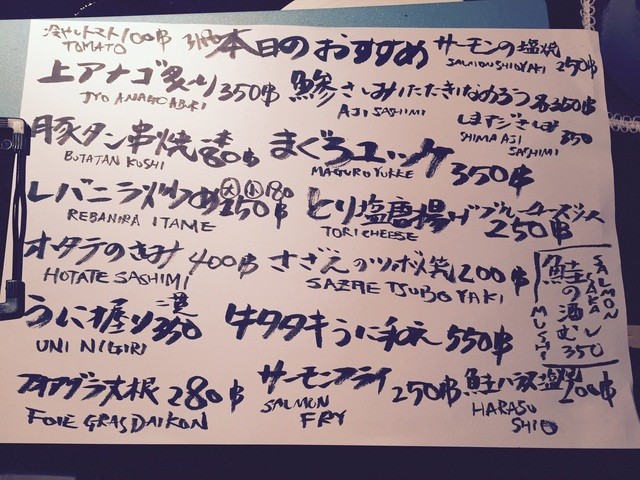 冷やしトマト 100B
TOMATO
本日のおすすめ
サーモンの塩焼 250B
SALMON SHIOYAKI
上アナゴ炙り 350B
JYO ANAGO ABURI
鯵さしみ/たたき/なめろう 各350B
AJI SASHIMI
しまあじさしみ 350
SHIMA AJI SASHIMI
豚タン串焼 一本 80B
BUTATAN KUSHI
まぐろユッケ 350B
MAGURO YUKKE
レバニラ炒め 大 250B 小 180
REBANIRA ITAME
とり塩唐揚げブルーチーズソース 250B
TORI CHEESE
ホタテのさしみ 400B
HOTATE SASHIMI
さざえのツボ焼 200B
SAZAE TSUBO YAKI
鮭の酒むし 350
SALMON SAKA MUSHI
うに握り 二貫 350
UNI NIGIRI
牛タタキうに和え 550B
フォアグラ大根 280B
FOIE GRAS DAIKON
サーモンフライ 250B
SALMON FRY
鮭ハラス塩焼 200B
HARASU SHIO